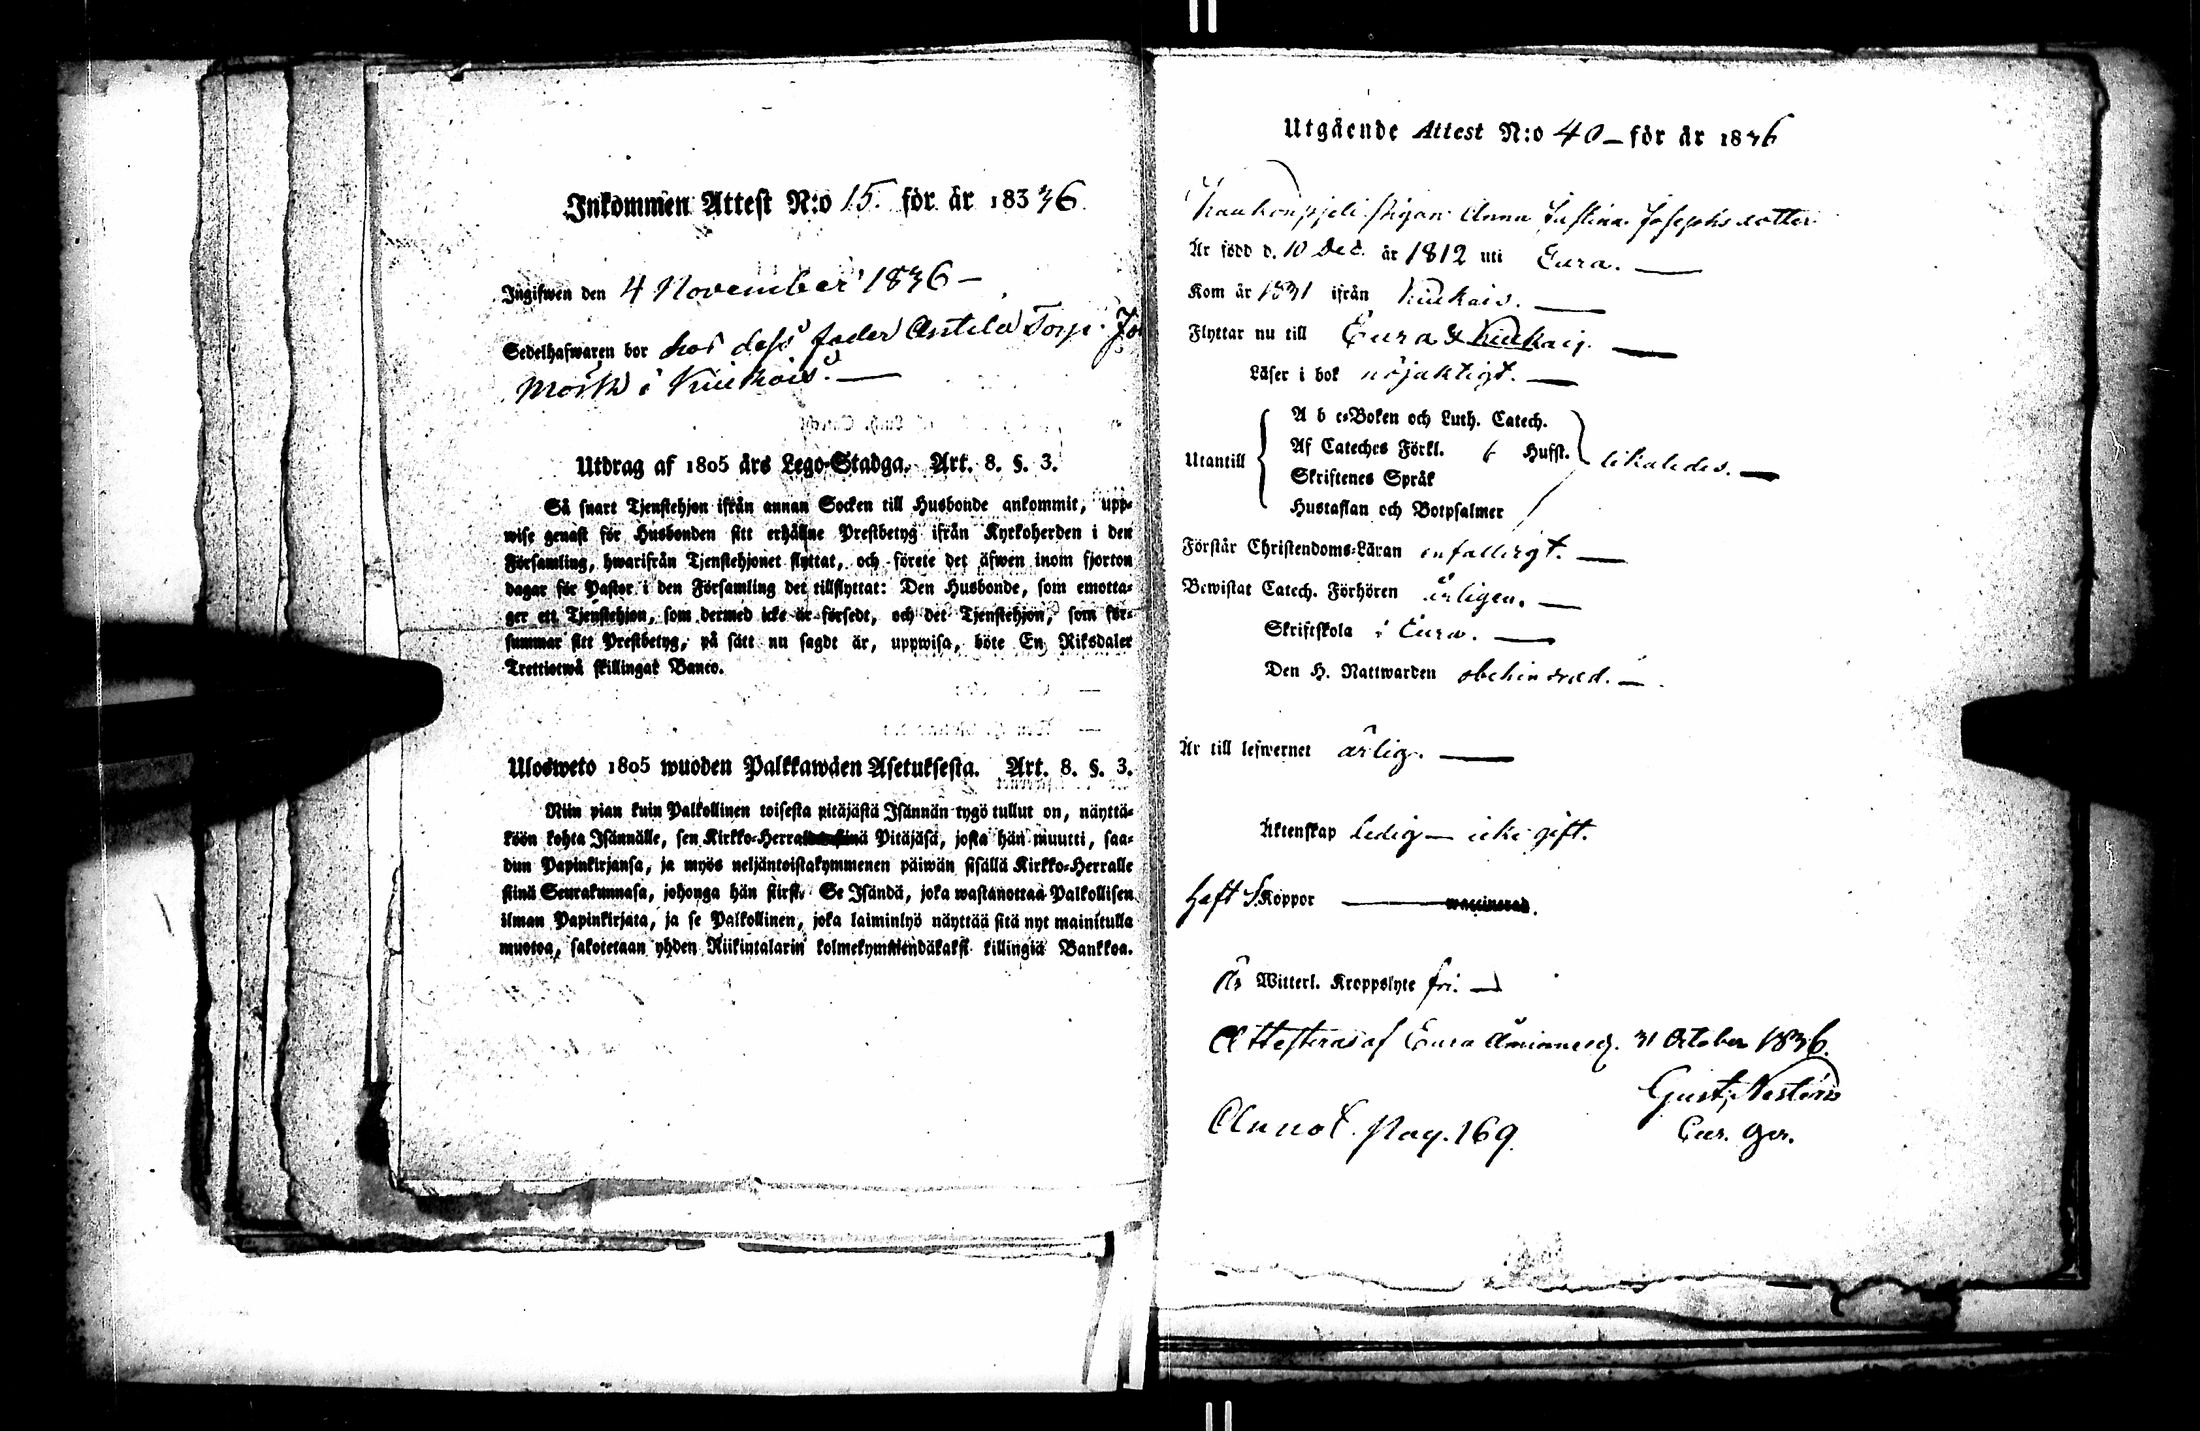 Inkommen Attest N:o 15. för år 183 36
Ingifwen den 4 November 1836 –
Sedelhafwaren bor hos dess fader Antila Torp. Jo
Mörk i Kiukais. —
Utdrag af 1805 års Lego-Stadga. Art. 8. §. 3.
Så snart Tjenstehjon ifrån annan Socken till Husbonde ankommit, upp-
wise genast för Husbonden sitt erhållne Prestbetyg ifrån Kyrkoherden i den
Församling, hwarifrån Tjenstehjonet flyttat, och förete det äfwen inom fjorton
dagar för Pastor i den Församling det tillflyttat: Den Husbonde, som emotta-
ger ett Tjenstehjon, som dermed icke är försedt, och det Tjenstehjon, som för-
summar sitt Prestbetyg, på sätt nu sagdt är, uppwisa, böte En Riksdaler
Trettiotwå skillingar Banco.
Ulosweto 1805 wuoden Palkkawäen Asetuksesta. Art. 8. §. 3.
Niin pian kuin Palkollinen toisesta pitäjästä Isännän tygö tullut on, näyttä-
köön kohta Isännälle, sen Kirkko-Herralda siinä Pitäjäsä, josta hän muutti, saa-
dun Papinkirjansa, ja myös neljäntoistakymmenen päiwän sisällä Kirkko-Herralle
siinä Seurakunnasa, johonga hän siirsi. Se Isändä, joka wastanottaa Palkollisen
ilman Papinkirjata, ja se Palkollinen, joka laiminlyö näyttää sitä nyt mainitulla
muotoa, sakotetaan yhden Riikintalarin kolmekymmendäkaksi killingiä Bankkoa.
Utgående Attest N:o 40 – för år 1836
pigan Anna Justina Josephsdotter
Är född d. 10 Dec. år 1812 uti Eura. —
Kom år 1831 ifrån Kiukais. —
Flyttar nu till Eura & Kiukais. —
Läser i bok nöjaktigt. —
A b c-Boken och Luth. Catech.
Af Cateches Förkl. 6 Hufst.
Utantill likaledes. —
Skriftenes Språk
Hustaflan och Botpsalmer
Förstår Christendoms-Läran enfalligt. —
Bewistat Catech. Förhören årligen. —
Skriftskola i Eura. —
Den H. Nattwarden obehindrad. —
Är till lefwernet ärlig. —
Äktenskap Ledig — icke gift.
Haft S. Koppor — waccinerad.
Är Witterl. Kroppslyte fri. —
Attesteras af Eura 31 October 1836.
Gust.
Annot. Pag. 169.